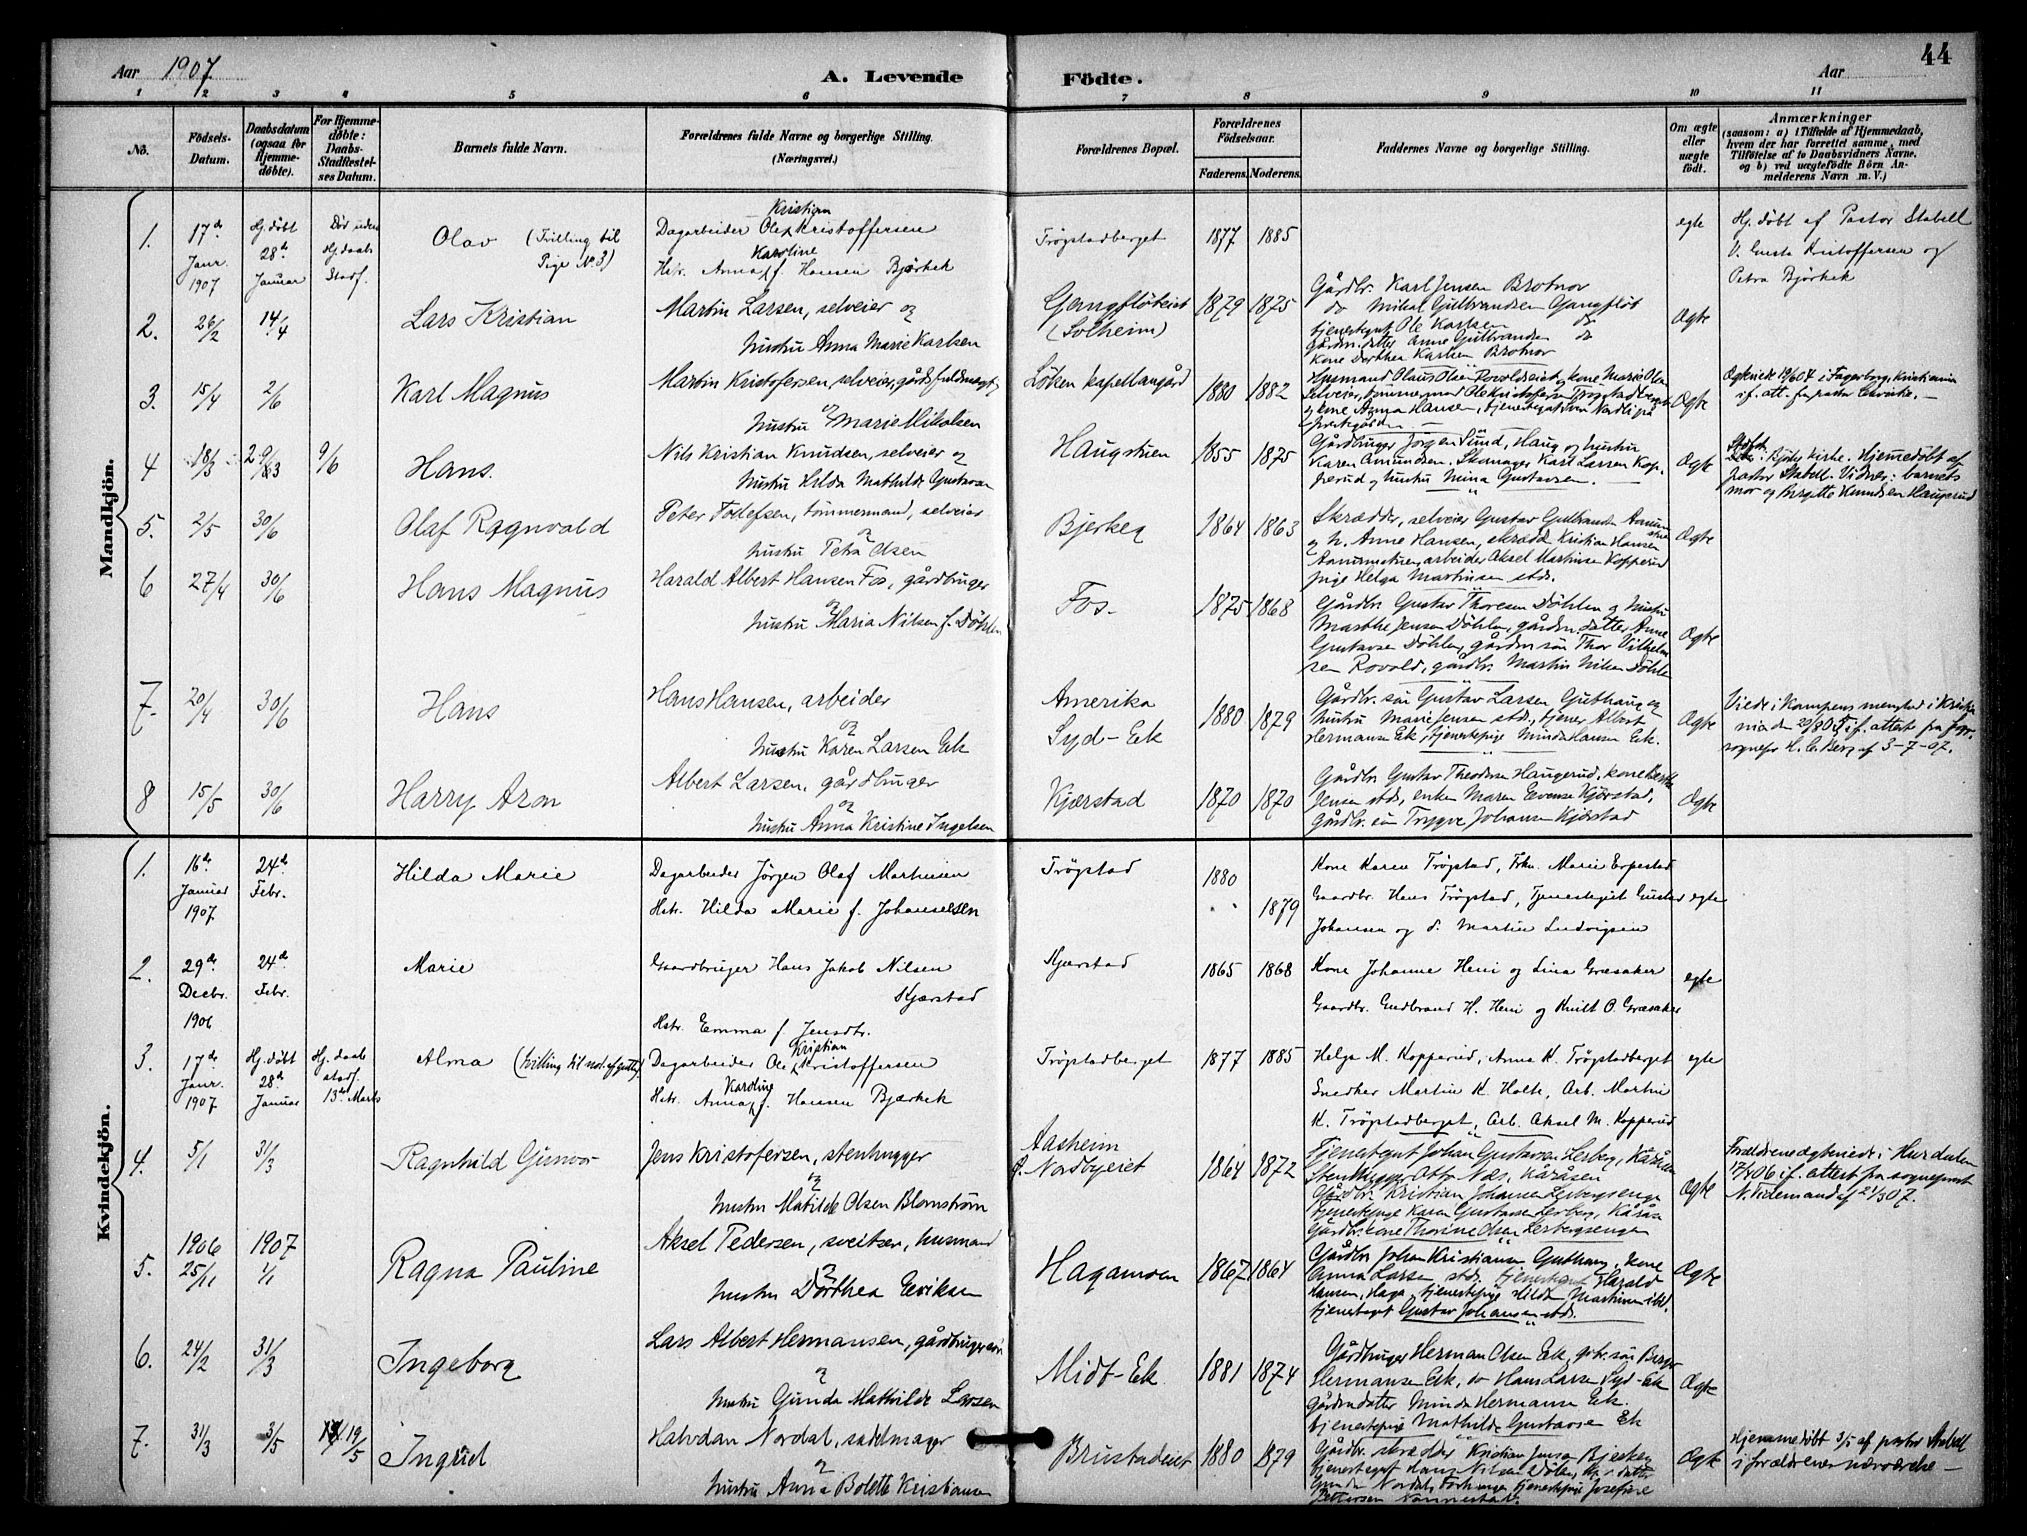 44
Aar 1907
A. Levende Födte.
Aar
1 2 3 4 5 6 7 8 9 10 11
No.
Födsels-Datum.
Daabsdatum (ogsaa for Hjemme-døbte).
For Hjemme-døbte: Daabs-Stadfæstel-ses Datum.
Barnets fulde Navn.
Forældrenes fulde Navne og borgerlige Stilling.
(Næringsvei.)
Forældrenes Bopæl.
Forældrenes Födselsaar.
Faderens. Moderens.
Faddernes Navne og borgerlige Stilling.
Om ægte eller uægte födt.
Anmærkninger
(saasom: a) i Tilfælde af Hjemmedaab, hvem der har forrettet samme, med Tilföielse af to Daabsvidners Navne, og b) ved uægtefödte Börn An-melderens Navn m. V.)
Mandkjön.
1. 17de Janr. 1907 Hj. døbt 28de Januar Død uden Hj. daab Stadf. Olav (Tvilling til Pige No 3)
Dagarbeider Ole Kristian Kristoffersen
Hstr. Anna Karoline f. Hansen Bjørkek
Trøgstadberget 1877 1885 egte
Hj. døbt af Pastor Stabell
V. Gusta Kristoffersen og
Petra Bjørkek
2. 26/2 14/4 Lars Kristian
Martin Larsen, selveier og
hustru Anna Marie Karlsen
Gangfløteiet (Solheim) 1879 1875
Gårdbr. Karl Jensen Brotnov
do Mikal Gulbrandsen Gangfløt
tjenestegut Ole Karlsen do
gårdm. datter Anne Gulbrandsen do
kone Dorthea Karlsen Brotnov
Ægte
3. 15/4 2/6 Karl Magnus
Martin Kristofersen, selveier, gårdsfuldmægt.
og
hustru Marie Nikolsen
Løken kapellangård 1880 1882
Husmand Olaus Olsen
Ægte
4 18/3 9/6 Hans.
Nils Kristian Knudsen, selveier og
hustru Hilda Mathilde Gustavsen
Haugstuen 1855 1875
Gårdbruger Jørgen Sund, Haug og hustru
Karen Amundsen. Skomager Karl Larsen Kop-
perud og hustru Mina Gustavsen.
Ægte
kirke. Hjemmedøbt af
pastor Stabell. Vidner: barnets
mor og Birgitte Knudsen Haugerud
5. 2/5 30/6 Olaf Ragnvald
Peter Tollefsen, tømmermand, selveier
og
hustru Petra Olsen
Bjerkeg 1864 1863
Skrædder, selveier Gustav Gulbrandsen
og h. Anne Hansen, skrædder Kristian Hansen
arbeider Aksel Martinsen Kopperud
pige Helga Martinsen stds.
Ægte
6 27/4 30/6 Hans Magnus
Harald Albert Hansen Fos, gårdbruger
og
hustru Maria Nilsen f. Döhlen
Fos. 1875 1868
Gårdbr. Gustav Thoresen Döhlen og hustru
Marthe Jensen Döhlen, gårdm. datter Anne
Gustavsen Döhlen, gårdm. søn Thor Vilhelm-
sen Rovold, gårdbr. Martin Nilsen Döhlen
Ægte
7. 20/4 30/6 Hans
Hans Hansen, arbeider
og
hustru Karen Larsen Ek
Amerika
Syd-Ek 1880 1879
Gårdbr. søn Gustav Larsen Guthaug og
hustru Marie Jensen stds., tjener Albert
Hermansen Ek, tjenestepige Minda Hansen Ek.
Ægte
Viede i Kampens menighed i Kristia-
nia den
sognepr H. C. Berg af 3-7-07.
8 15/5 30/6 Harry Aron
Albert Larsen, gårdbruger
og
hustru Anna Kristine Ingelsen
Kjærstad 1870 1870
Gårdbr. Gustav Theodorsen Haugerud, kone
Jensen stds., enken Maren Evensen Kjörstad,
Gårdbr. søn Trygve Johansen Kjörstad
Ægte
Kvindekjön.
1. 16de Januar 1907 24de Febr. Hilda Marie
Dagarbeider Jørgen Olaf Martinsen
Hstr. Hilda Marie f. Johansen
Trøgstad 1880 1879
Kone Karen Trøgstad, Frk. Marie Erpestad
Gaardbr. Hans Trøgstad, Tjenestegut Gustav
Johansen og d. Martin Ludvigsen
egte
2. 29de Decbr. 1906 24de Febr. Marie
Gaardbruger Hans Jakob Nilsen
Kjærstad
Hstr. Emma f. Jensdtr.
Kjærstad 1865 1868
Kone Johanne Heni og Lina Græsaker
Gaardbr. Gudbrand H. Heni og Knut O. Græsaker
egte
3. 17de Janr. 1907 Hj. døbt 28de Januar Hj. daab stadf. 13de Marts Alma (tvilling til no 1 af gutter)
Dagarbeider Ole Kristian Kristoffersen
Hstr. Anna Karoline f. Hansen Bjærkek
Trøgstadberget 1877 1885
Helga M. Kopperud, Anna K. Trøgstadberget
Snedker Martin K. Holte, Arb. Martin
K. Trøgstadberget, Arb. Aksel M. Kopperud
egte
4. 5/1 31/3 Ragnhild Gunvor
Jens Kristofersen, stenhugger
og
hustru Matilde Olsen Blomstrøm
Aasheim
Nordbyeiet 1864 1872
Tjenestegut Johan Gustavsen Lerberg, Kåråsen
Stenhugger Otto Næs, Kåråsen
Gårdbr. Kristian Johansen Lerbergsengen
tjenestepige Karen Gustavsen Lerberg, Kåråsen
Gårdbr. kone Thorine Olsen Lerbergsengen
Ægte
Forældrene ægteviede i Hurdalen
17/4 06 if. attest fra sogneprest
N. Tidemand af 2/3 07.
5. 1906 25/11 1907 1/1 Ragna Pauline
Aksel Pedersen, sveitser, husmand
og
hustru Dorthea Eriksen
Hagamoen 1867 1864
Gårdbr Johan Kristiansen Guthaug, kone
Anna Larsen stds. tjenestegut Harald
Hansen, Haga, tjenestepige Hilda Martinsen ibd.
tjenestegut Gustav Johansen stds.
Ægte
6. 24/2 31/3 Ingeborg
Lars Albert Hermansen, gårdbrugersøn
og
hustru Gunda Mathilde Larsen
Midt-Ek 1881 1874
Gårdbruger Herman Olsen Ek, gbr. søn Berger
Hermansen Ek, do Hans Larsen Syd-Ek
Gårdm. datter Minda Hermansen Ek.
tjenestepige Mathilde Gustavsen Ek
Ægte
7. 31/3 3/5 19/5 Ingrid
Halvdan Nordal, sadelmager
og
hustru Anna Bolette Kristiansen
Brustadeiet 1880 1879
Gårdbr. skrædder Kristian Jensen Bjerkeg
tjenestegut Hans Nilsen Dölen, Gbr. datter
Gunda Nordal, tjenestepige Josefine
Pettersen Nannestad.
Ægte
Hjemmedøbt 3/5 af pastor Stabell
i forældrenes nærværelse